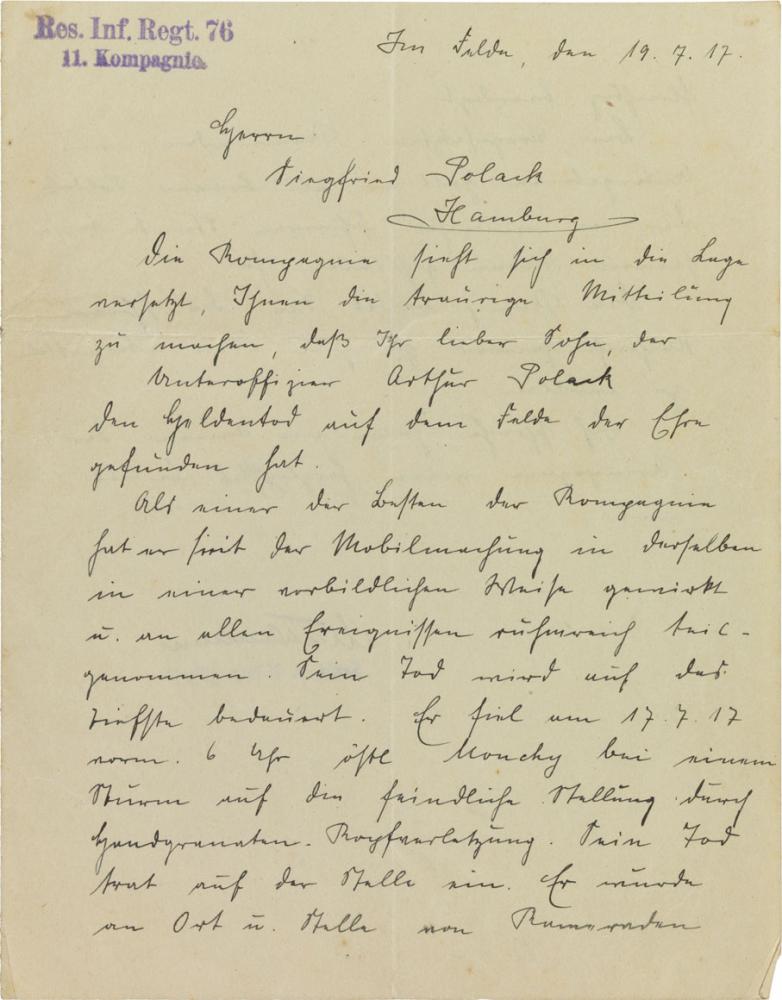 Res. Inf. Regt. 76
11. Kompagnie.
Im Felde, den 19. 7. 17.
Herrn
Siegfried Polack
Hamburg
Die Kompagnie sieht sich in die Lage
versetzt, Ihnen die traurige Mitteilung
zu machen, daß Ihr lieber Sohn, der
Unteroffizier Arthur Polack
den Heldentod auf dem Felde der Ehre
gefunden hat.
Als einer der Besten der Kompagnie
hat er seit der Mobilmachung in derselben
in einer vorbildlichen Weise gewirkt
u. an allen Ereignissen ruhmreich teil-
genommen. Sein Tod wird auf das
Tiefste bedauert. Er fiel am 17. 7. 17
vorm. 6 Uhr östl Monchy bei einem
Sturm auf die feindliche Stellung durch
Handgranaten-Kopfverletzung. Sein Tod
trat auf der Stelle ein. Er wurde
an Ort u. Stelle von Kameraden